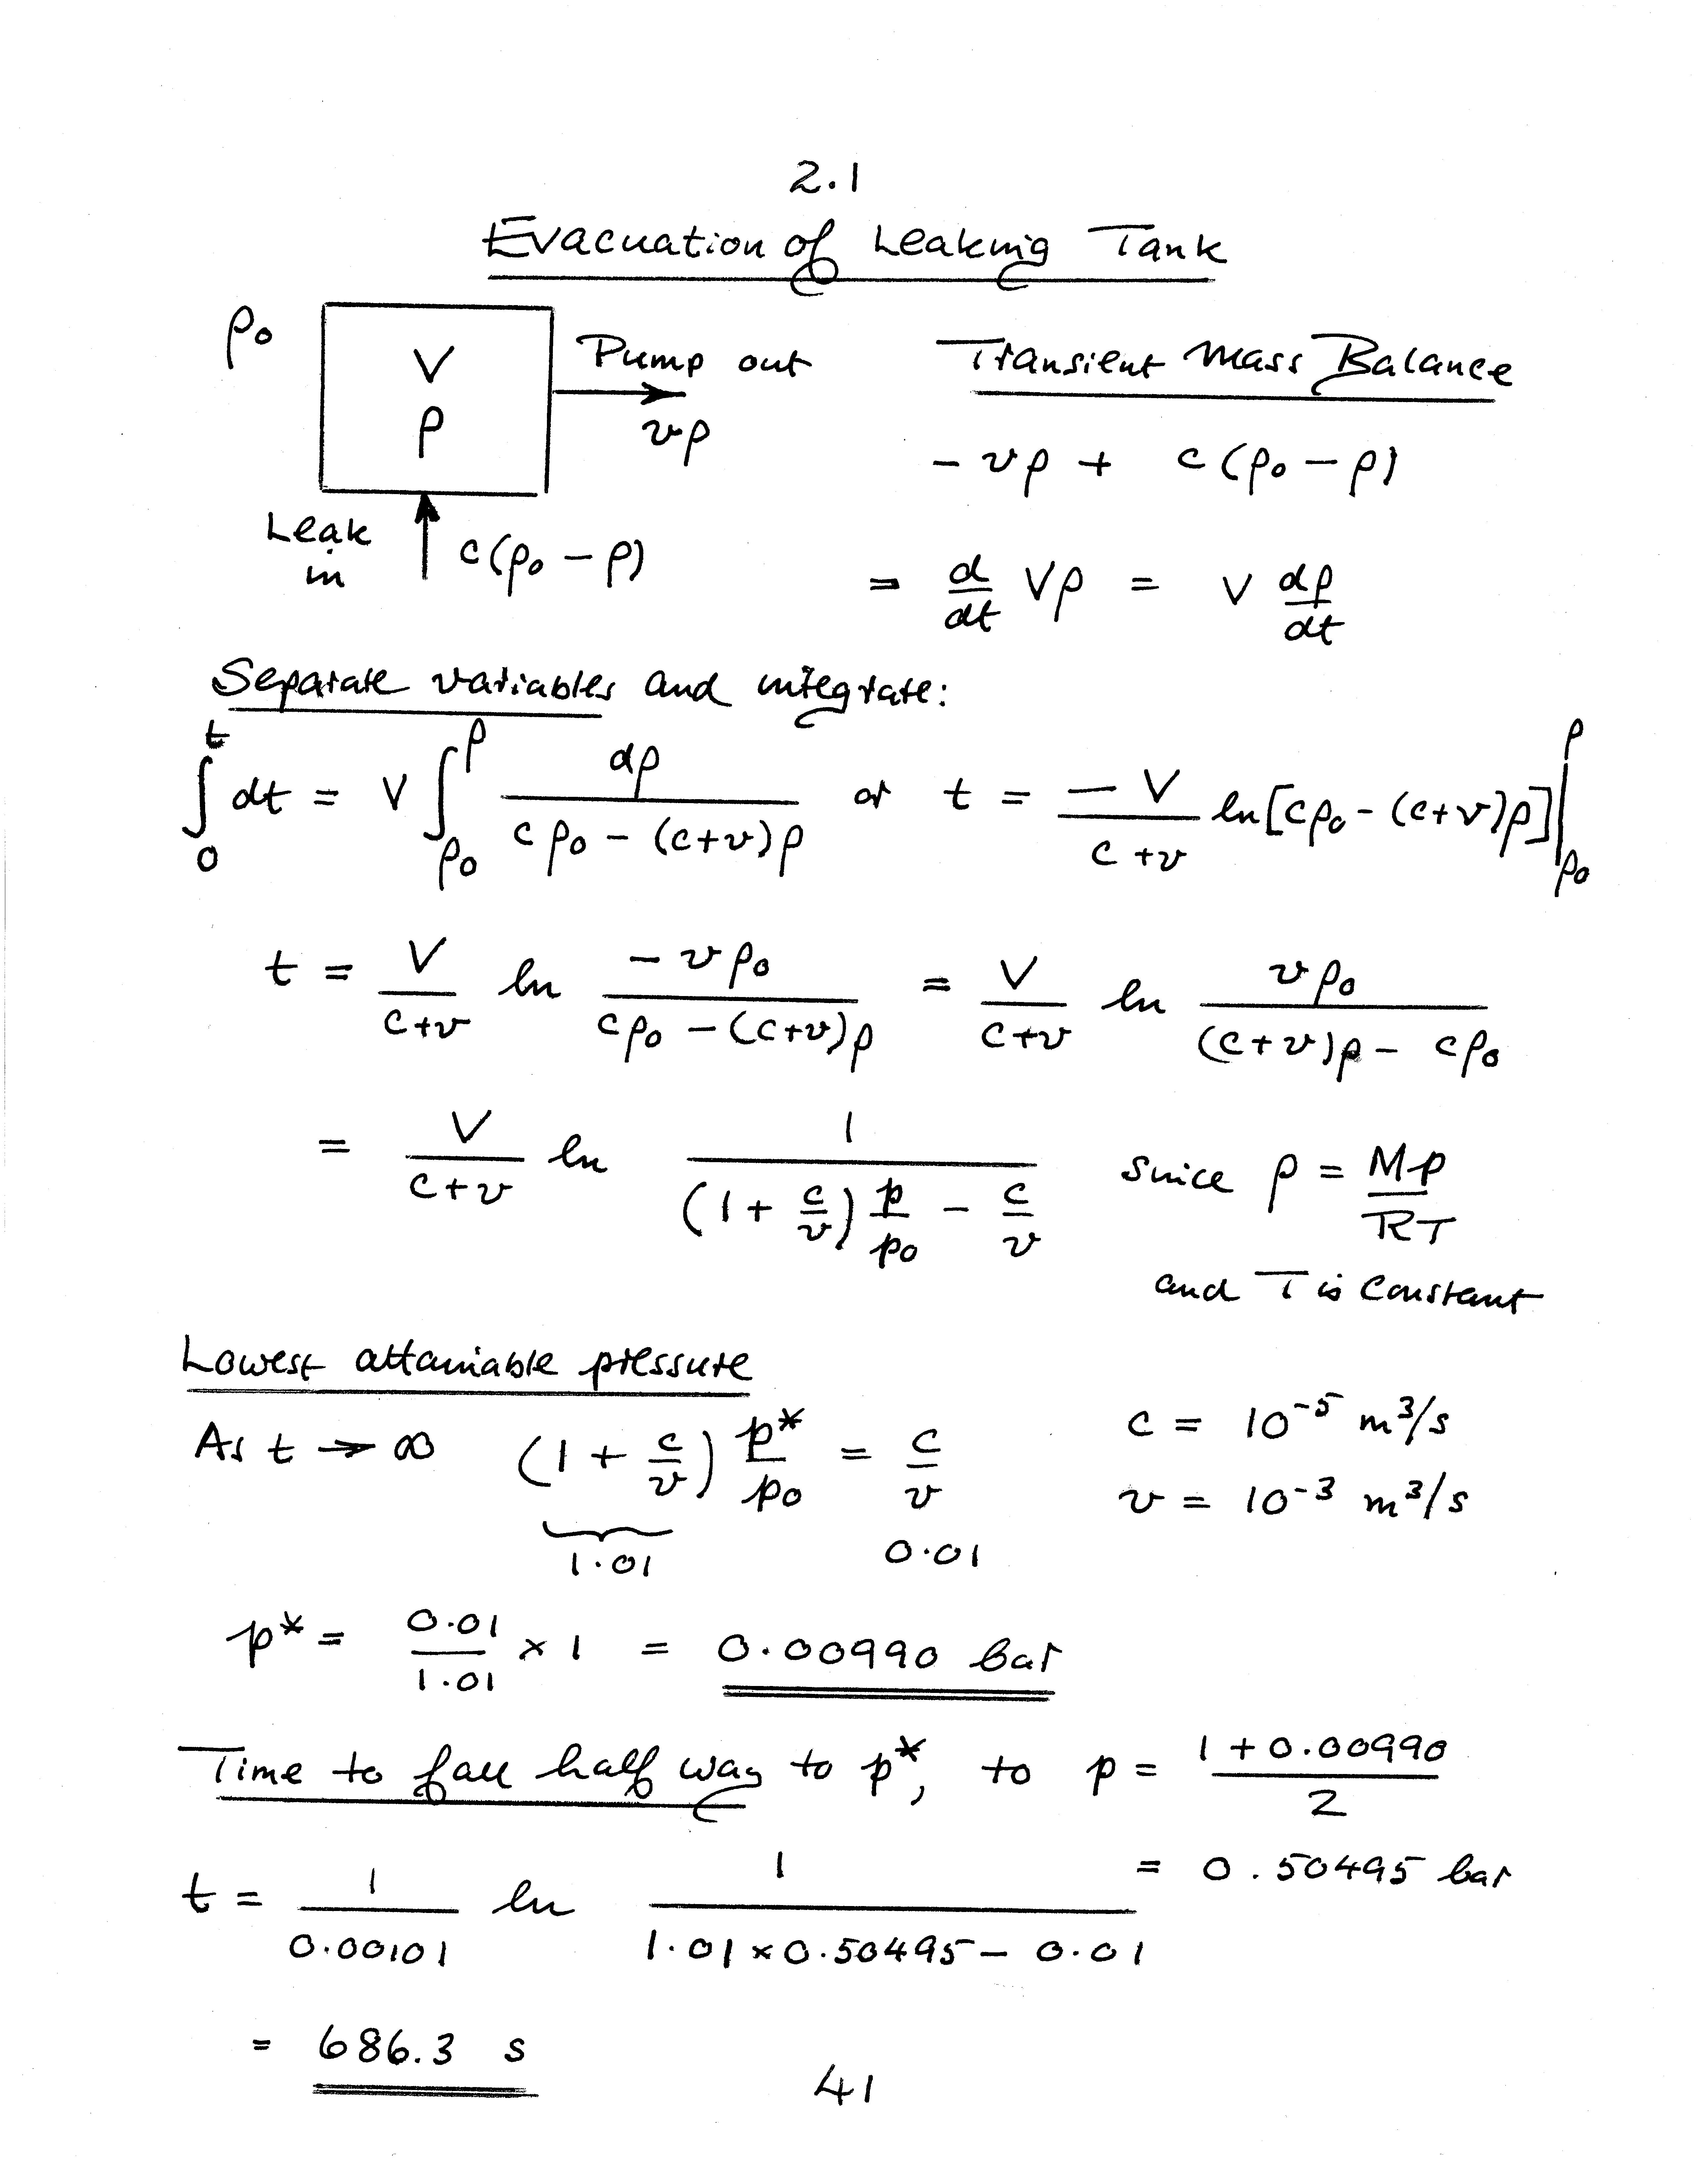 2.1
Evacuation of Leaking Tank
ρ₀
V
ρ
Pump out
vρ
Leak
in
c(ρ₀ − ρ)
Transient Mass Balance
− vρ + c(ρ₀ − ρ)
= d/dt Vρ = V dρ/dt
Separate variables and integrate:
∫₀ᵗ dt = V ∫_ρ₀^ρ dρ / (cρ₀ − (c+v)ρ) or t = −V/(c+v) ln[cρ₀ − (c+v)ρ]|_ρ₀^ρ
t = V/(c+v) ln −vρ₀ / (cρ₀ − (c+v)ρ) = V/(c+v) ln vρ₀ / ((c+v)ρ − cρ₀)
= V/(c+v) ln 1 / ((1 + c/v) p/p₀ − c/v) since ρ = Mp/RT
and T is constant
Lowest attainable pressure
As t → ∞ (1 + c/v) p*/p₀ = c/v
1.01 0.01
c = 10⁻⁵ m³/s
v = 10⁻³ m³/s
p* = 0.01/1.01 × 1 = 0.00990 bar
Time to fall half way to p*, to p = (1 + 0.00990)/2
= 0.50495 bar
t = 1/0.00101 ln 1/(1.01 × 0.50495 − 0.01)
= 686.3 s
41